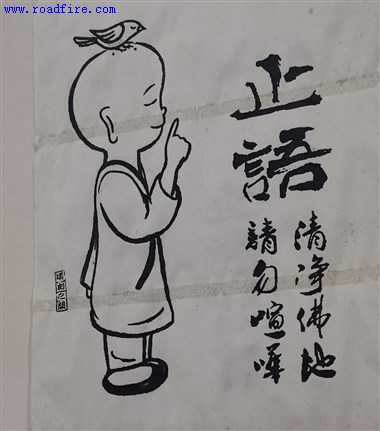 www.roadfire.com
止語
清净佛地
請勿喧嘩